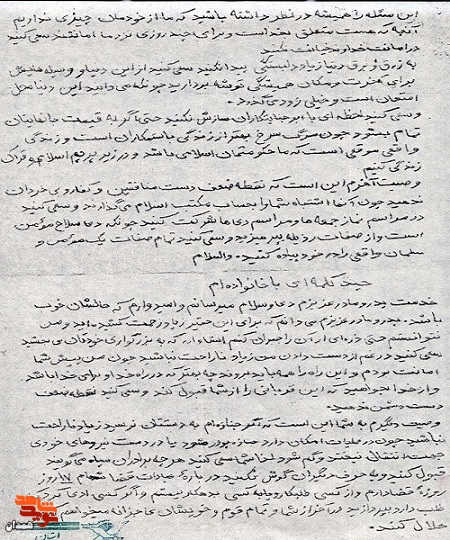 این مسئله را همیشه در نظر داشته باشید که ما از خودمان چیزی نداریم
آنچه که هست متعلق بخداست و برای چند روزی نزد ما امانتند سعی کنید
در امانت خداوند خیانت نکنید
به زرق و برق دنیا زیاد دلبستگی پیدا نکنید سعی کنید از این دنیا وسیله
برای آخرت و مکان همیشگی توشه بردارید چونکه می‌دانید این دنیا محل
امتحان است و خیلی زود می‌گذرد.
و سعی کنید لحظه‌ای با جنایتکاران سازش نکنید حتی اگر به قیمت جانتان
تمام بشود چون مرگ سرخ بهتر از زندگی با ستمکاران است و زندگی
واقعی موقعی است که ما حکومتمان اسلامی باشد و در زیر پرچم اسلام و قرآن
زندگی کنیم
وصیت آخرم این است که نقطه ضعف دست منافقین و کفار
ندهید چون آنها اشتباه شما را بحساب مکتب اسلام می‌گذارند و سعی کنید
در مراسم نماز جمعه‌ها و مراسم دعاها شرکت کنید چونکه دعا سلاح مؤمن
است و از صفات رذیله بپرهیزید و سعی کنید تمام صفات یک مؤمن و
مسلمان واقعی را در خود پیاده کنید. والسلام
چند کلمه‌ای با خانواده‌ام
خدمت پدر و مادر عزیزم دعا و سلام میرسانم و امیدوارم که حالشان خوب
باشد. پدر و مادر عزیزم می‌دانم که برای این حقیر زیاد زحمت کشیدید و من
نتوانستم حتی ذره‌ای از آن را جبران کنم انشاءاله که به بزرگواری خودتان می‌بخشید
سعی کنید در غم از دست دادن من زیاد ناراحت نباشید چون من پیش شما
امانت بودم و این راه را همه باید بروند چه بهتر که در راه خدا و برای خدا باشد
و از خدا بخواهید که این قربانی را از شما قبول کند و سعی کنید نقطه ضعف
دست دشمن ندهید.
وصیت دیگرم به شما این است که اگر جنازه‌ام به دستتان نرسید زیاد ناراحت
نباشید چون در عملیات امکان دارد جنازه پودر شود یا در دست نیروهای خودی
جهت انتقال نیفتد و گم شود لذا شما سعی کنید هر چه برادران سپاه می‌گویند
قبول کنید و به حرف دیگران گوش نکنید در بارهٔ عبادات قضا ۱۷ روز
روزهٔ قضا دارم و از کسی طلبکار و یا به کسی بدهکار نیستم و اگر کسی ادعا کرد
طلب دارد بپردازید در آخر از تمام قوم و خویشان عاجزانه میخواهم
حلال کنند.